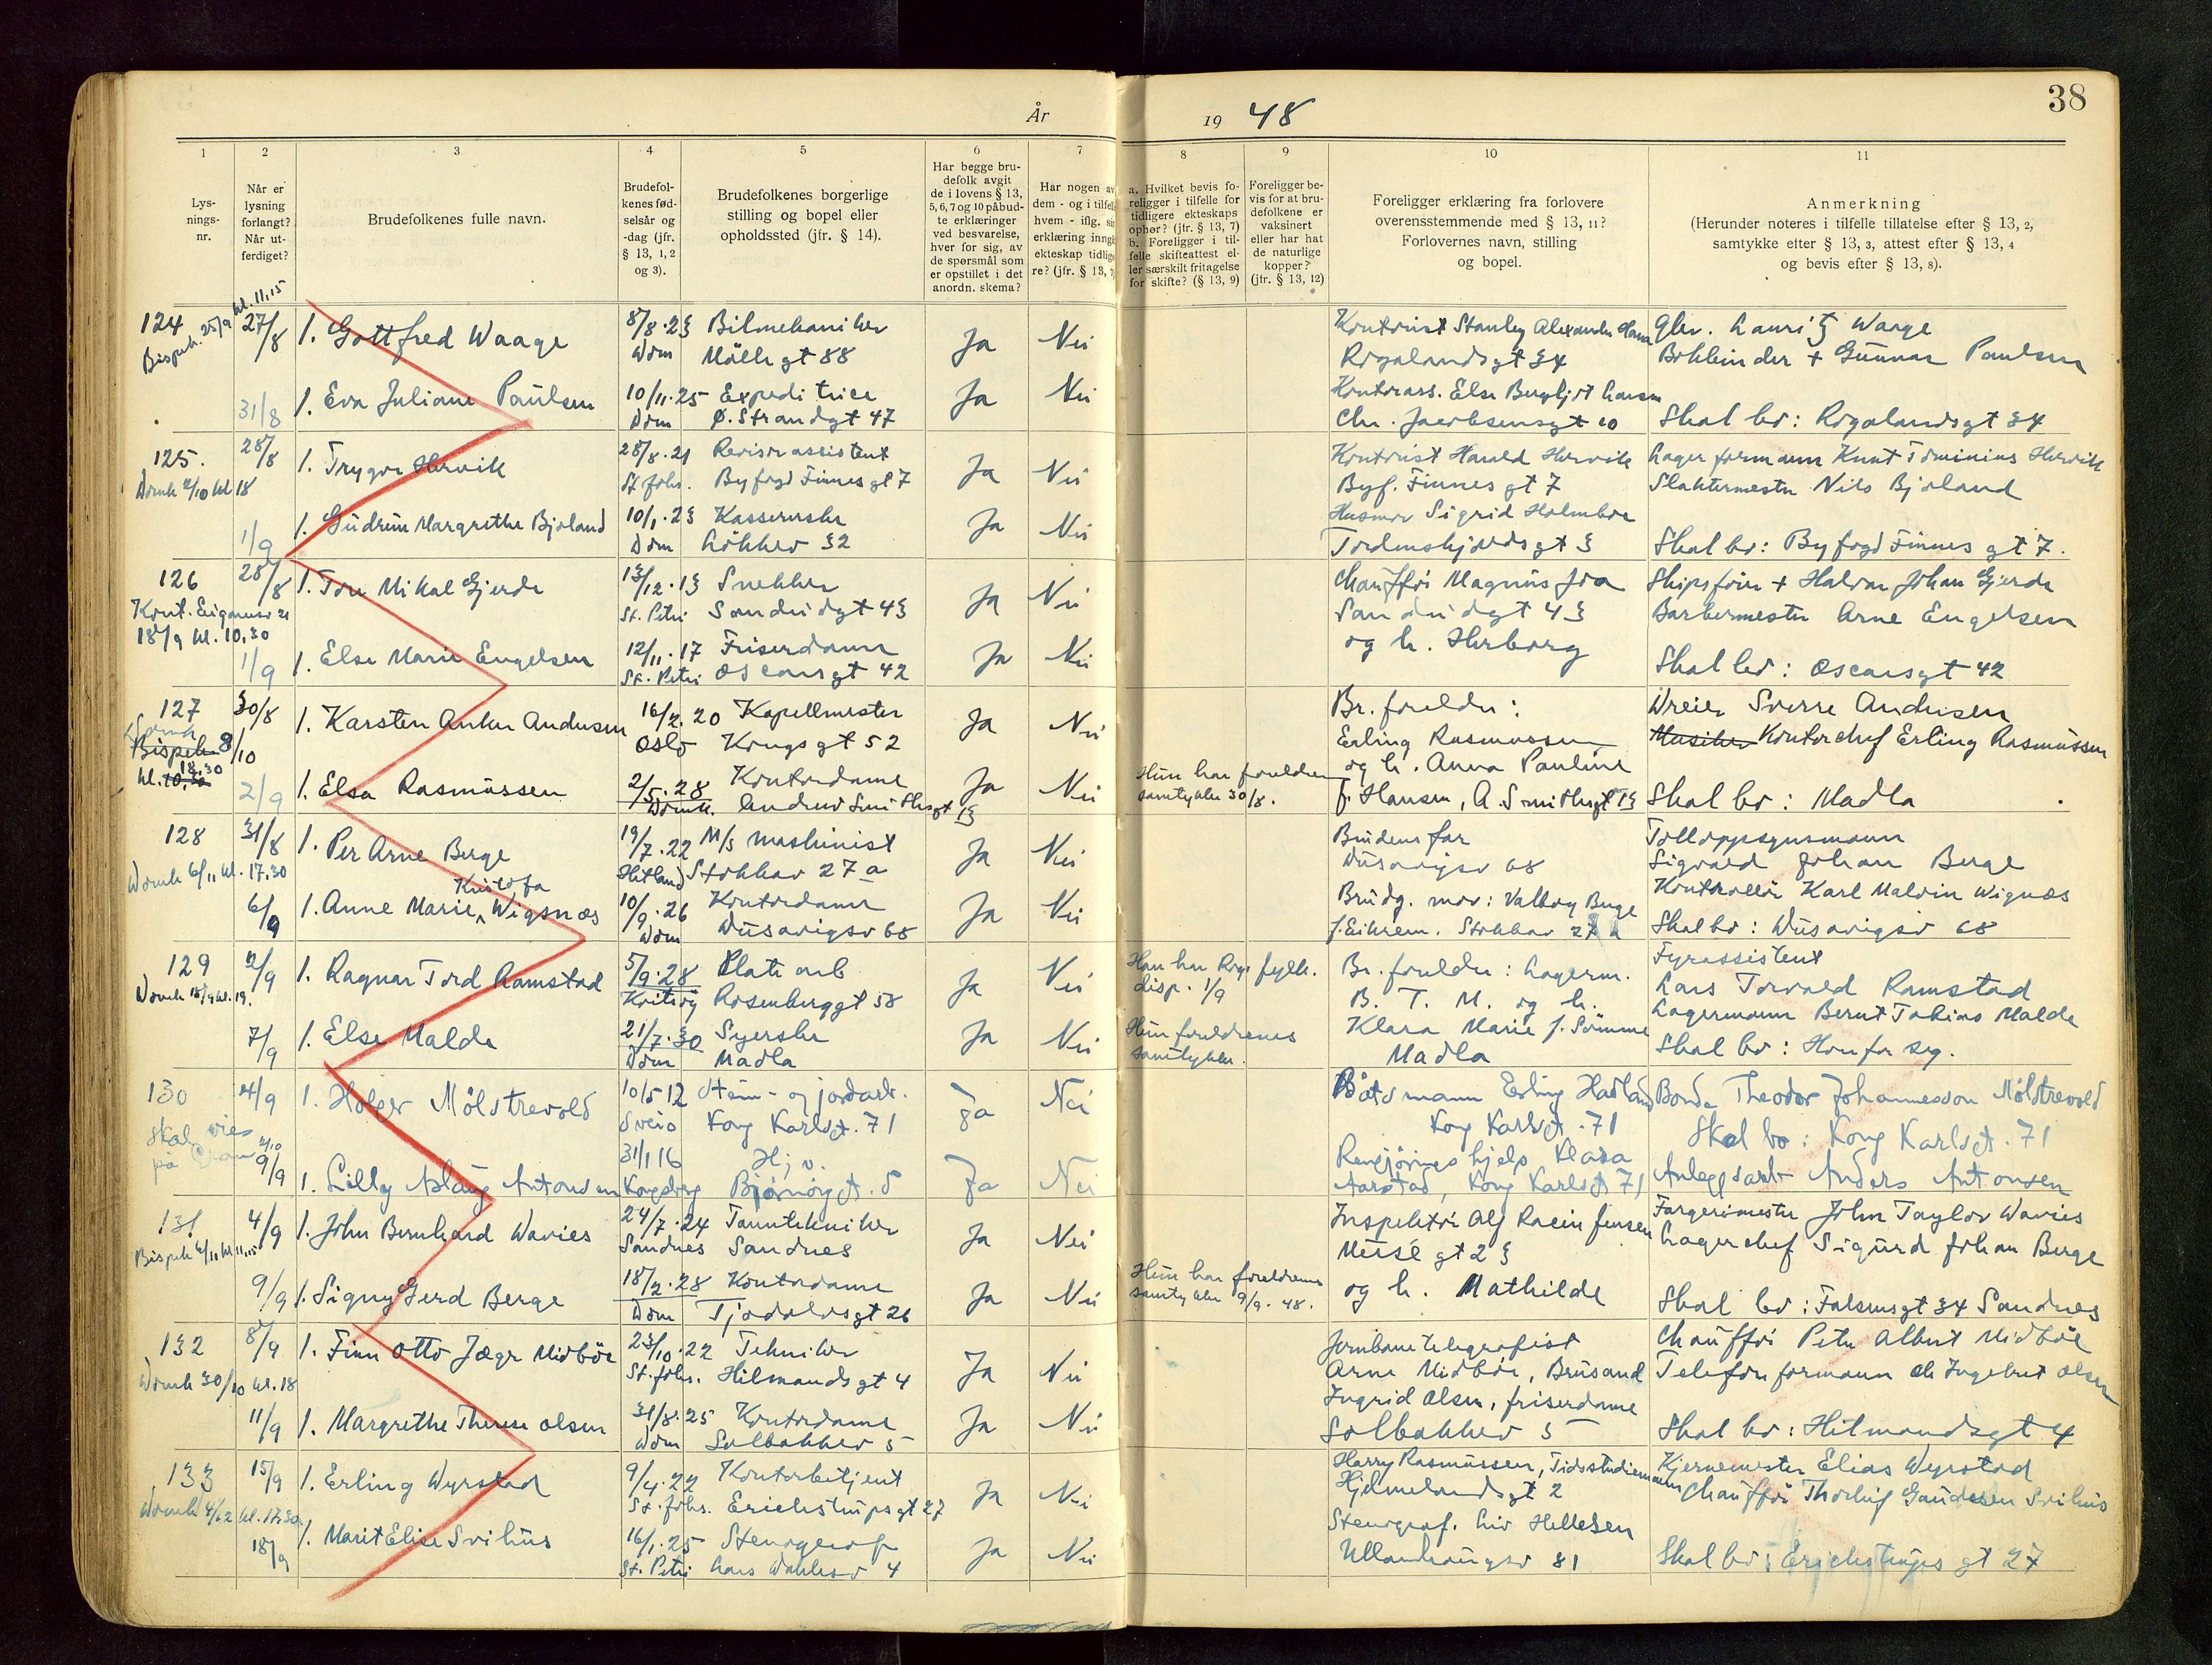 38
År 1948
1 2 3 4 5 6 7 8 9 10 11
Lysnings-nr.
Når er lysning forlangt? Når utferdiget?
Brudefolkenes fulle navn.
Brudefolkenes fødselsår og -dag (jfr. § 13, 1, 2 og 3).
Brudefolkenes borgerlige stilling og bopel eller opholdssted (jfr. § 14).
Har begge brudefolk avgit de i lovens § 13, 5, 6, 7 og 10 påbudte erklæringer ved besvarelse, hver for sig, av de spørsmål som er opstillet i det anordn. skema?
Har nogen av dem - og i tilfelle hvem - iflg. sin erklæring inngått ekteskap tidligere? (jfr. § 13, 7)
a. Hvilket bevis foreligger i tilfelle for tidligere ekteskaps ophør? (jfr. § 13, 7) b. Foreligger i tilfelle skifteattest eller særskilt fritagelse for skifte? (§ 13, 9)
Foreligger bevis for at brudefolkene er vaksinert eller har hat de naturlige kopper? (jfr. § 13, 12)
Foreligger erklæring fra forlovere overensstemmende med § 13, 11? Forlovernes navn, stilling og bopel.
Anmerkning (Herunder noteres i tilfelle tillatelse efter § 13, 2, samtykke efter § 13, 3, attest efter § 13, 4 og bevis efter § 13, 8).
124 27/8 1. Gottfred Waage 8/8.23 Bilmekaniker Ja Nei Kontorist Stanley Alexander Hana Lauritz Waage
Bispek. 25/9 kl. 11,15 Dom Mølle gt 88 Rogalandsgt 34 Bokbinder + Gunnar Paulsen
31/8 1. Eva Juliane Paulsen 10/11.25 Expeditrice Ja Nei Kontorass. Else Bergljot Larsen
Dom Ø. Strandgt 47 Chr. Jacobsensgt 10 Skal bo: Rogalandsgt 34
125. 28/8 1. Trygve Hervik 28/8.21 Revisorassistent Ja Nei Kontorist Harald Hervik Lagerformann Knut Tominius Hervik
Domk 2/10 kl 18 St. Johs. Byfogd Finnes gt 7 Byf. Finnes gt 7 Slaktermester Nils Bjoland
1/9 1. Gudrun Margrethe Bjoland 10/1.23 Kassererske Ja Nei Husmor Sigrid Holmboe
Dom Løkkev 32 Tordenskjoldsgt 3 Skal bo: Byfogd Finnes gt 7.
126 28/8 1. Tore Mikal Gjerde 13/12.13 Snekker Ja Nei Chauffør Magnus Joa Skipsfører + Halvor Johan Gjerde
Kont. Eiganesv 21 St. Petri Sandeidgt 43 Sandeidgt 43 Barbermester Arne Engelsen
18/9 kl. 10,30
1/9 1. Else Marie Engelsen 12/11.17 Friserdame Ja Nei og h. Herborg
St. Petri Oscarsgt 42 Skal bo: Oscarsgt 42
127 30/8 1. Karsten Anker Andersen 16/2.20 Kapellmester Ja Nei Br. foreldre: Dreier Sverre Andersen
Domk Bispek 8/10 Oslo Kongsgt 52 Erling Rasmussen Musiker Kontorchef Erling Rasmussen
kl. 10,30 18.30 og h. Anna Pauline
2/9 1. Elsa Rasmussen 2/5.28 Kontordame Ja Nei Hun har foreldrenes samtykke 30/8. f. Hansen, A. Smithsgt 13 Skal bo: Madla
Domk. Andreas Smithsgt 13
128 31/8 1. Per Arne Berge 19/7.22 M/s maskinist Ja Nei Brudens far Tolloppsynsmann
Domk 6/11 kl. 17.30 Hetland Stokkav 27a Dusavigsv 68 Sigvald Johan Berge
6/9 1. Anne Marie Kristofa Wigsnæs 10/9.26 Kontordame Ja Nei Brudg. mor: Valborg Berge Kontrollør Karl Malvin Wignæs
Dom Dusavigsv 68 f. Eikrem. Stokkav 27 a Skal bo: Dusavigsv 68
129 2/9 1. Ragnar Tord Ramstad 5/9.28 Platearb Ja Nei Han har Roga fylk. disp. 1/9 Br. foreldre: Lagerm. Fyrassistent
Domk 18/9 kl. 19. Kvitsøy Rosenberggt 58 B. T. M. og h. Lars Torvald Ramstad
7/9 1. Else Malde 21/7.30 Syerske Ja Nei Hun foreldrenes samtykke. Klara Marie f. Sømme Lagermann Bernt Tobias Malde
Dom Madla Madla Skal bo: Hver for seg.
130 4/9 1. Holger Mölstrevold 10/5 12 Stein- og jordarb. Ja Nei Båtsmann Erling Hadland Bonde Theodor Johannesson Mölstrevold
Skal vies på Sveio Kong Karlsgt. 71 Kong Karlsgt. 71 Skal bo: Kong Karlsgt. 71
9/9 1. Lilly Aslaug Antonsen 31/1 16 Hj. v. Ja Nei Rengjørings hjelp Klara Anleggsarb Anders Antonsen
Kongsberg Bjørnöygt. 5 Aarstad, Kong Karlsgt 71
131 4/9 1. John Bernhard Davies 24/7.24 Tanntekniker Ja Nei Inspektør Alf Racin Jensen Fargerimester John Taylor Davies
Bispek 6/11 kl 11,15 Sandnes Sandnes Musé gt 23 Lagerchef Sigurd Johan Berge
9/9 1. Signy Gerd Berge 18/2.28 Kontordame Ja Nei Hun har foreldrenes samtykke 9/9.48. og h. Mathilde
Dom Tjodolvsgt 26 Skal bo: Falsensgt 34 Sandnes
132 8/9 1. Finn Otto Jæger Midbøe 23/10.22 Tekniker Ja Nei Jernbanetelegrafist Chauffør Peter Albert Midbøe
Domk 30/10 kl. 18 St. Johs. Hilmandsgt 4 Arne Midbøe, Brusand Telefonformann Ole Ingebret Olsen
11/9 1. Margrethe Therese Olsen 31/8.25 Kontordame Ja Nei Ingrid Olsen, friserdame
Dom Solbakkev 5 Solbakkev 5 Skal bo: Hilmandsgt 4
133 15/9 1. Erling Wyrstad 9/4.22 Kontorbetjent Ja Nei Harry Rasmussen, Tidsstudiemann Kjernemester Elias Wyrstad
Domk 4/12 kl. 17.30. St. Johs. Erichstrupsgt 27 Hjelmelandsgt 2 Chauffør Thorleif Gaudesen Svihus
18/9 1. Marit Elise Svihus 16/1.25 Stenograf Ja Nei Stenograf. Liv Hellesen
St. Petri Lars Dahlesv 4 Ullandhaugsv 81 Skal bo: Erichstrups gt 27